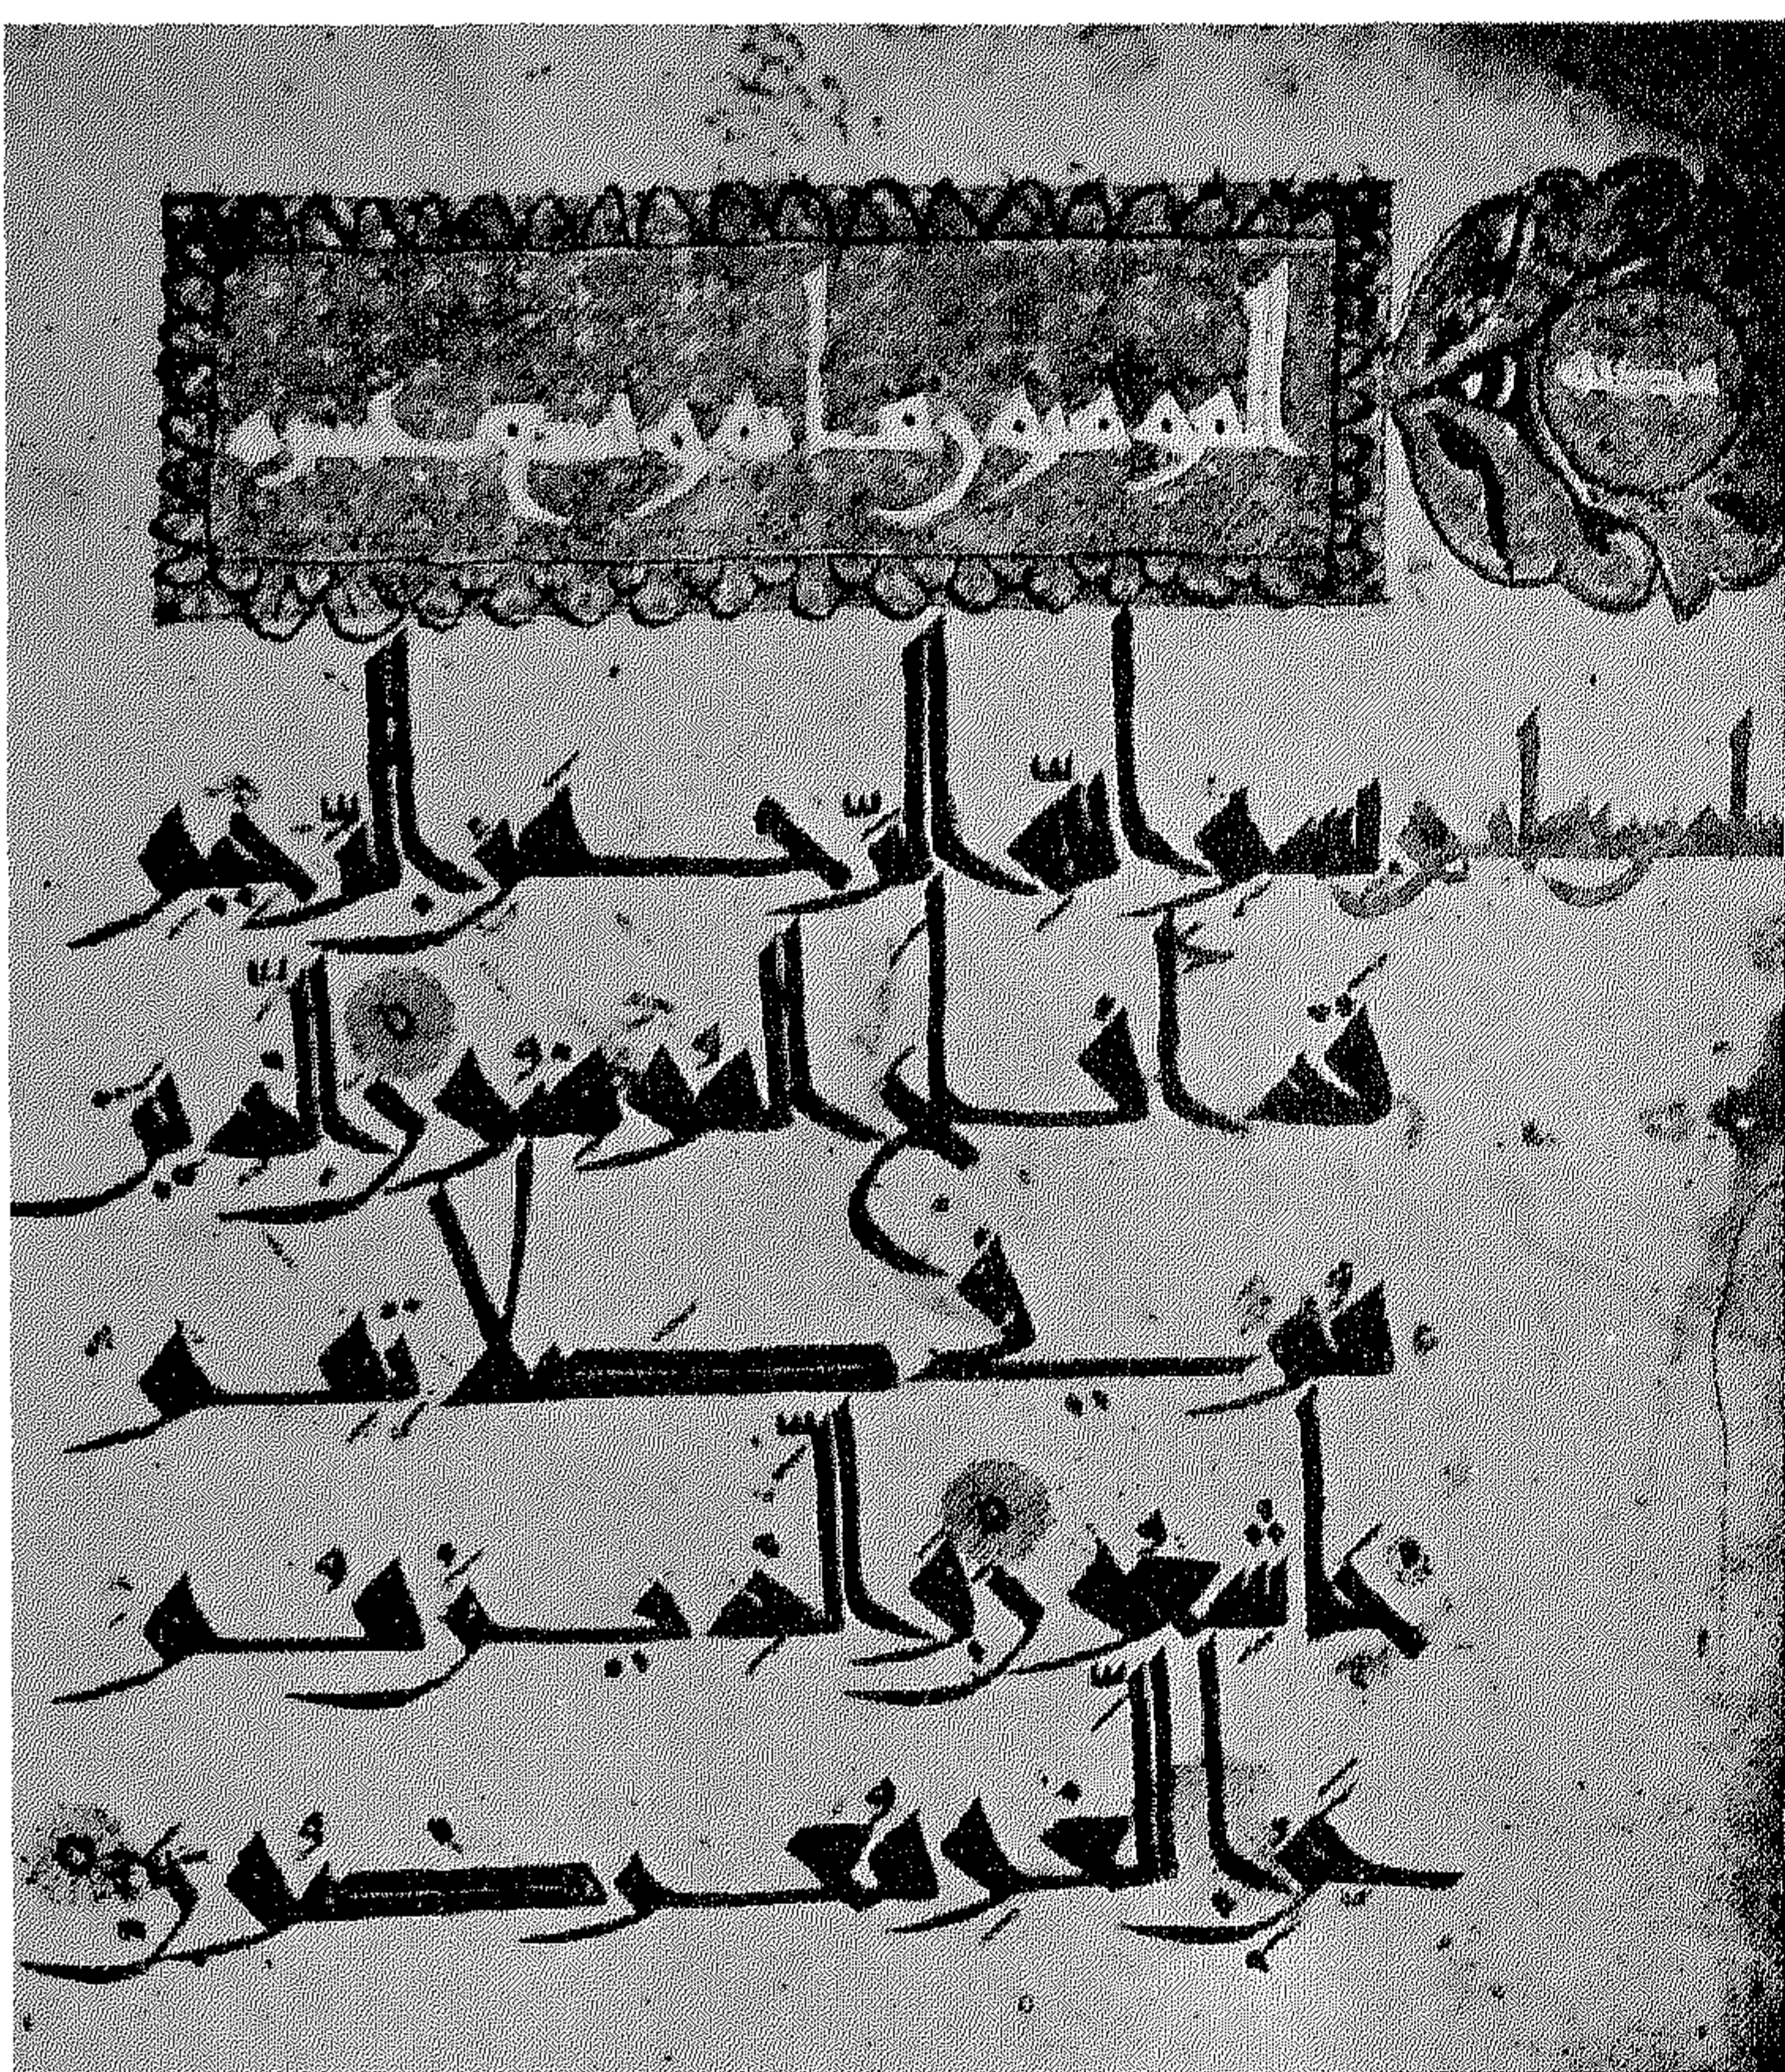 بسم الله الرحمن الرحيم
قد أفلح المؤمنون الذين
هم في صلاتهم
خاشعون والذين هم
عن اللغو معرضون